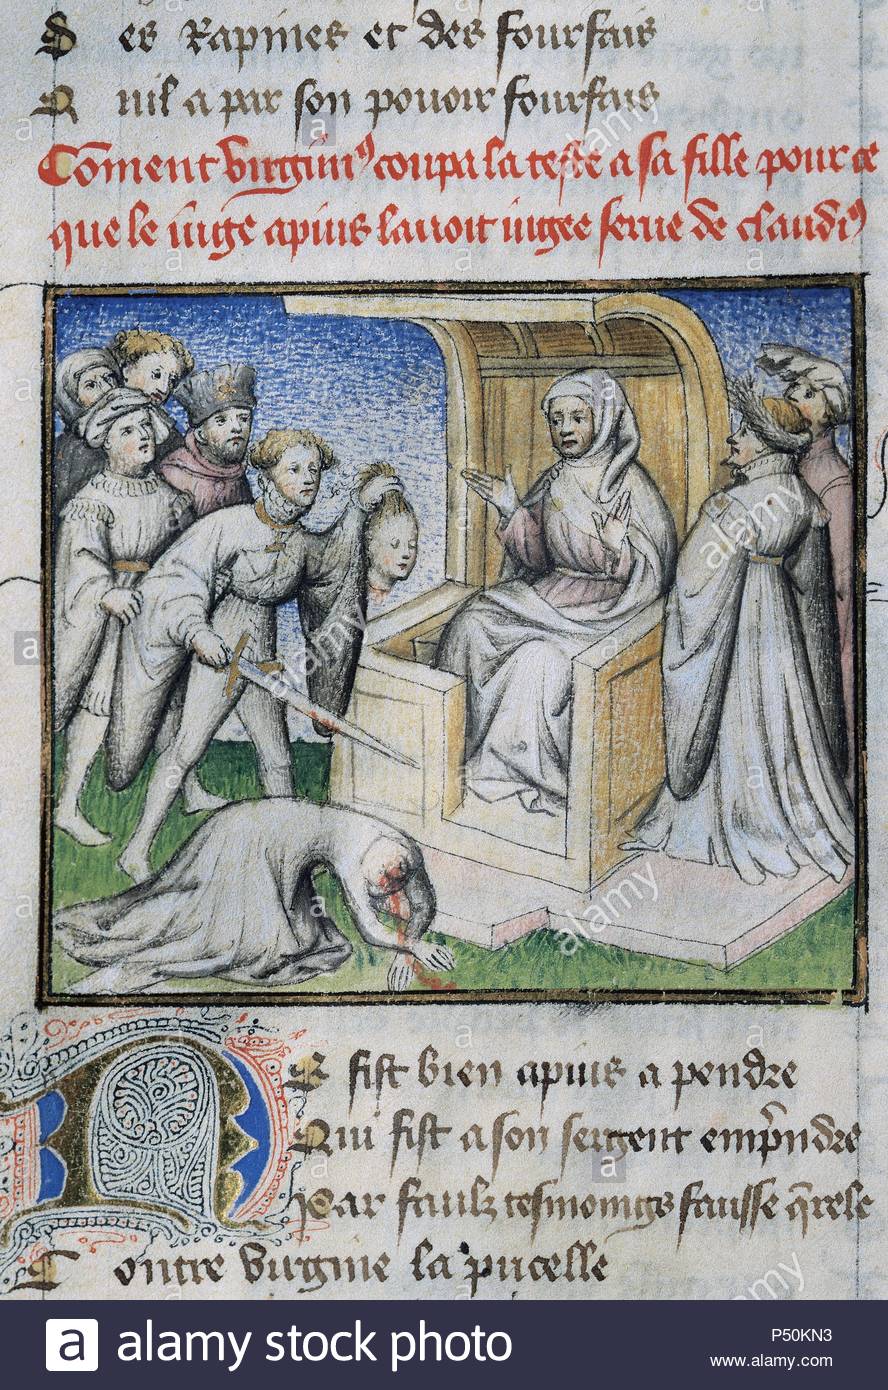 Des Rapines et des fourfais
Quil a par son pouoir fourfais
Coment Virginius coupa la teste a sa fille pour ce
que le iuge apius lauoit iugee serue de claudius
Ne fist bien apius a pendre
Qui fist a son sergent emprendre
Par faulz tesmoings fausse querele
Contre Virgine la pucelle
a alamy stock photo
P50KN3
www.alamy.com